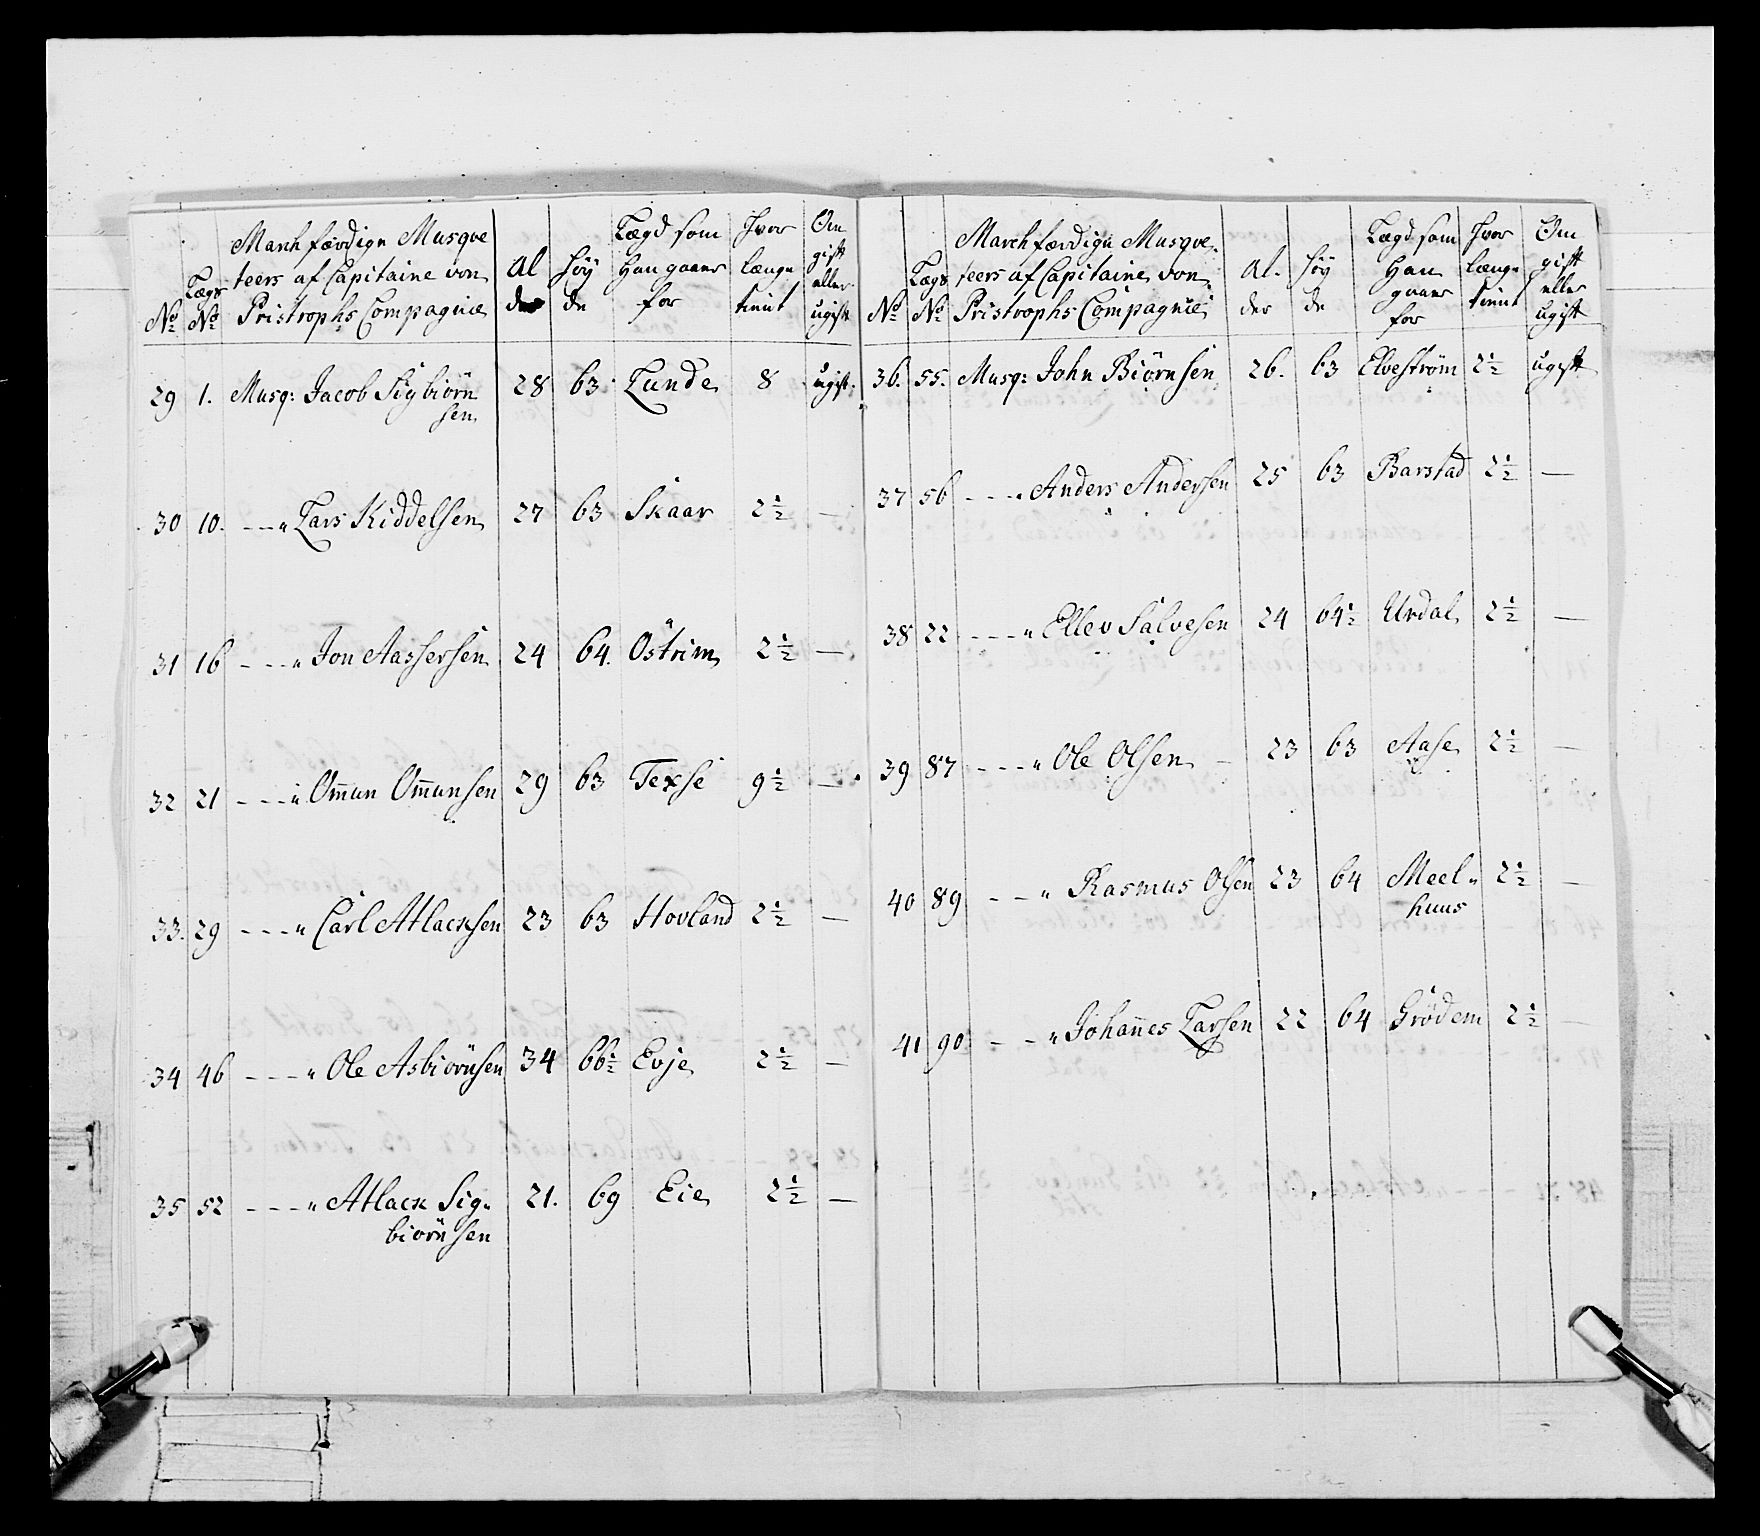 No
Lægs No
March færdige Musqve
teers af Capitaine von
Pristrophs Compagnie
Al
der
Høy
de
Lægd som
Han gaaer
for
Hvor
længe
tient
Om
gift
eller
ugift
29 1. Musq: Jacob Sigbiørn 28 63 Lunde 8 ugift.
sen
30 10. - - - " Lars Kiddelsen 27 63 Skaar 2 1/2 —
31 16 - - - " Jon Aassersen 24 64. Østrim 2 1/2 —
32 21 - - - " Om̄un Om̄unsen 29 63 Texse 9 1/2 —
33. 29 - - - " Carl Atlacksen 23 63 Hovland 2 1/2 —
34 46 - - - " Ole Asbiørnsen 34 66 1/2 Evje 2 1/2 —
35 52 - - - " Atlack Sig- 21. 69 Eie 2 1/2 —
biørnsen
No
Lægs No
March færdige Musqve-
teers af Capitaine von
Pristrophs Compagnie
Al-
der
Høy
de
Lægd som
Han
gaaer
for
Hvor
længe
tient
Om
gift
eller
ugift
36. 55. Musq: John Biørnsen 26. 63 Elvestrøm 2 1/2 ugift
37 56 - - - " Anders Andersen 25 63 Barstad 2 1/2 —
38 22 - - - " Ellev Salvesen 24 64 1/2 Urdal 2 1/2 —
39 87 - - - " Ole Olsen 23 63 Aase 2 1/2 —
40 89 - - " Rasmus Olsen 23 64 Meel- 2 1/2 —
huus
41 90 - - " Johan̄es Larsen 22 64 Grødem 2 1/2 —